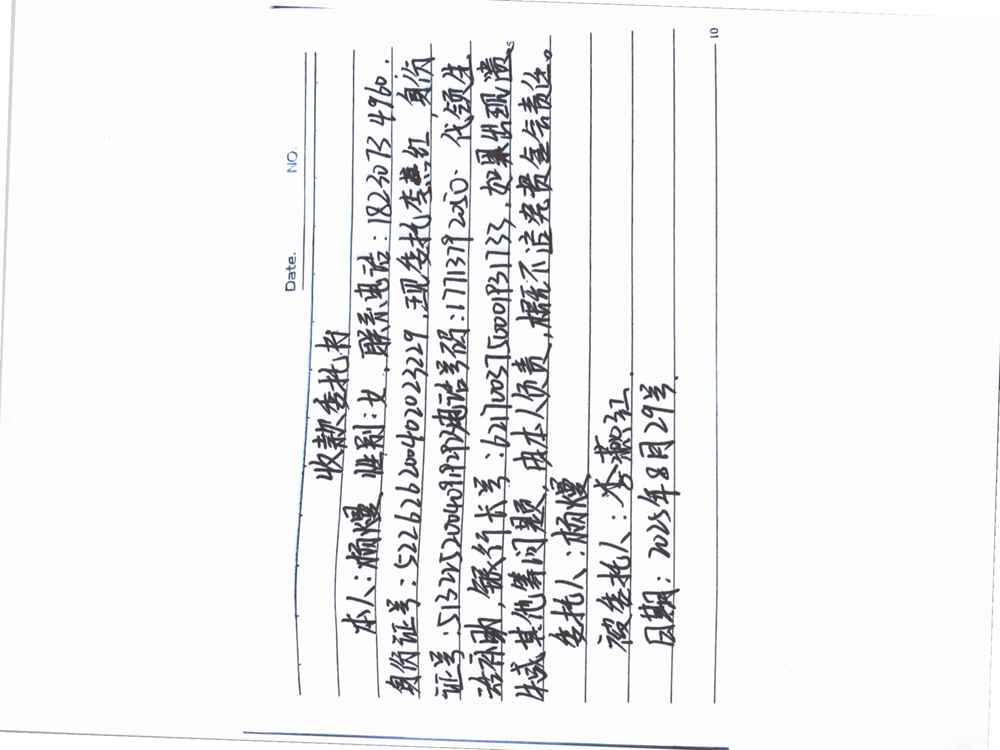 Date.      NO.
收款委托书
本人:杨嫚,性别:女,联系电话:18230734960.
身份证号:522626200402023229,现委托李燕红 身份
证号:513225200409192924电话号码:17713792050. 代领生
活补助,银行卡号:6217003750001931733,如果出现遗
失或其他等问题,由本人负责,概不追究贵基金会责任。
委托人:杨嫚
被委托人:李燕红
日期:2025年8月29号
10